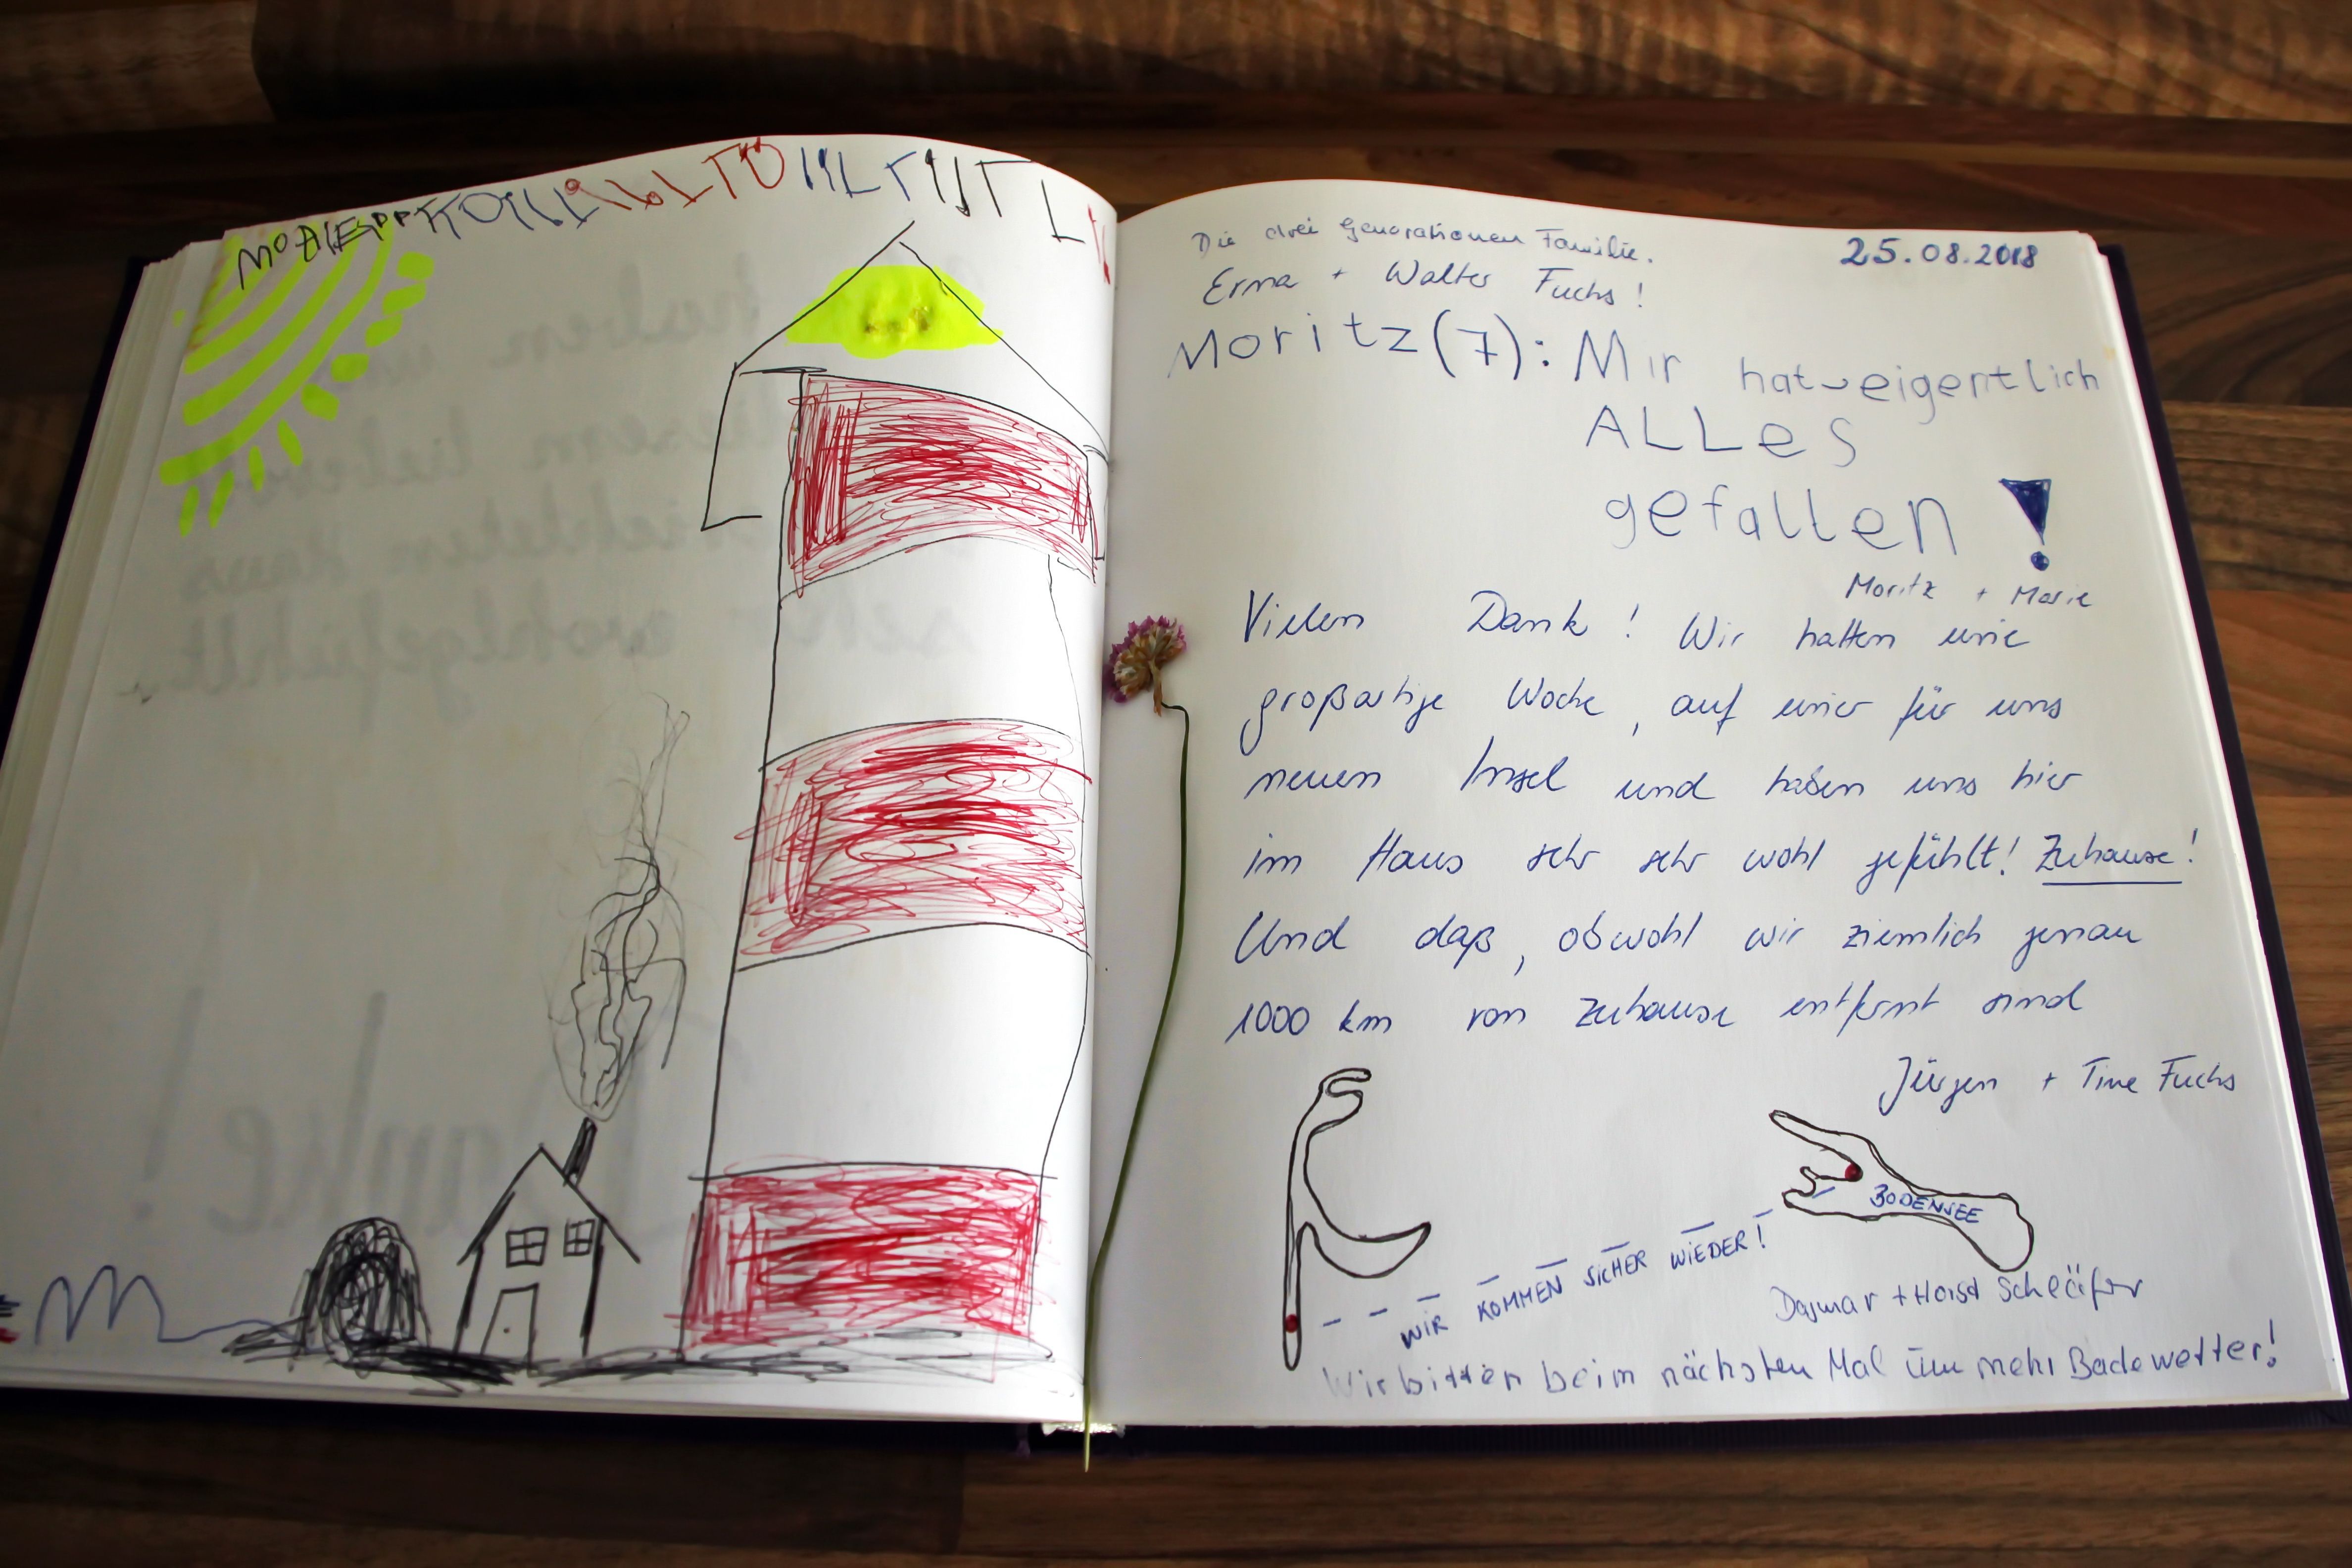 Die drei Generationen Familie.
25.08.2018
Erma + Walter Fuchs!
Moritz (7): Mir hat eigentlich
ALLes
gefallen!
Moritz + Marie
Vielen Dank! Wir hatten eine
großartige Woche, auf einer für uns
neuen Insel und haben uns hier
im Haus sehr sehr wohl gefühlt! Zuhause!
Und daß, obwohl wir ziemlich genau
1000 km von Zuhause entfernt sind
Jürgen + Tine Fuchs
BODENSEE
WIR KOMMEN SICHER WIEDER!
Dagmar + Horst Schläfer
Wir bitten beim nächsten Mal um mehr Badewetter!